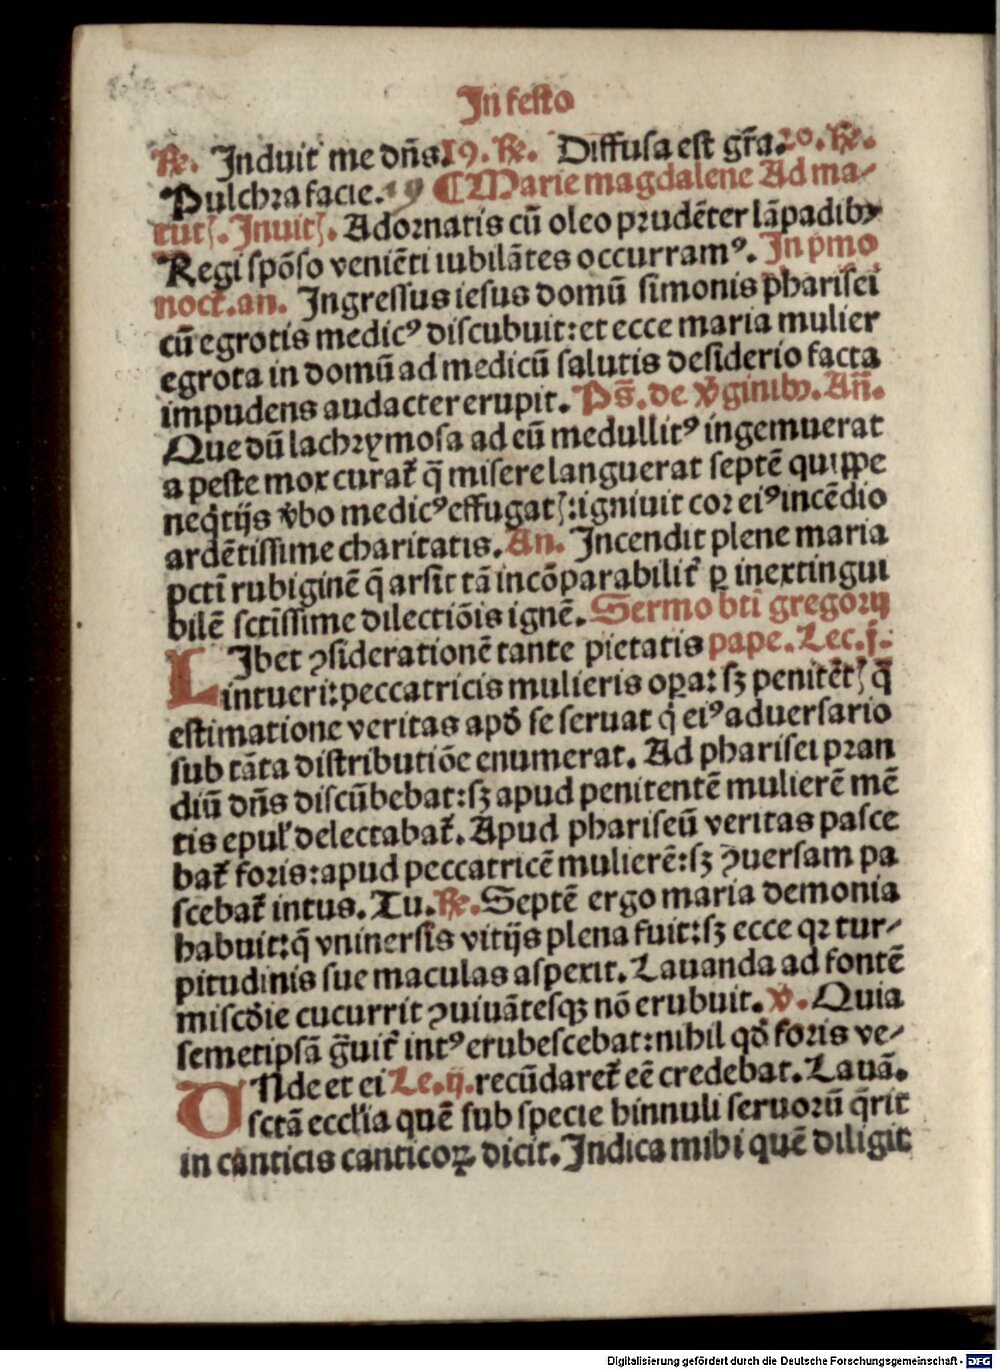 In festo
℞. Induit me dn̄s. 19. ℞. Diffusa est gr̄a. 20. ℞.
Pulchra facie. 19 ¶ Marie magdalene Ad ma-
tut̄. Inuit̄. Adornatis cū oleo prudēter lāpadibꝰ
Regi spōso veniēti iubilātes occurramꝰ. In pͥmo
noct̄. an. Ingressus iesus domū simonis pharisei
cū egrotis medicꝰ discubuit: et ecce maria mulier
egrota in domū ad medicū salutis desiderio facta
impudens audacter erupit. Ps̄. de v̓ginibꝰ. An̄.
Que dū lachrymosa ad eū medullitꝰ ingemuerat
a peste mox curat̄ q̄ misere languerat septē quippe
neq̄tijs v̓bo medicꝰ effugat̄: igniuit cor eiꝰ incēdio
ardētissime charitatis. An. Incendit plene maria
pcti rubiginē q̄ arsit tā incōparabilit̄ ꝑ inextingui
bilē sctissime dilectiōis ignē. Sermo bti gregorij
LIbet ꝯsiderationē tante pietatis pape. Lec. j.
intueri: peccatricis mulieris oꝑa: sꝫ penitēt̄ q̄
estimatione veritas apd̄ se seruat q̄ eiꝰ aduersario
sub tāta distributiōe enumerat. Ad pharisei pran
diū dn̄s discūbebat: sꝫ apud penitentē mulierē mē
tis epul̄ delectabat̄. Apud phariseū veritas pasce
bat̄ foris: apud peccatricē mulierē: sꝫ ꝯuersam pa
scebat̄ intus. Tu. ℞. Septē ergo maria demonia
habuit: q̄ vniuersis vitijs plena fuit: sꝫ ecce qꝛ tur-
pitudinis sue maculas aspexit. Lauanda ad fontē
miscd̄ie cucurrit ꝯuiuātesqꝫ nō erubuit. ℣. Quia
semetipsā g̓uit̄ intꝰ erubescebat: nihil qd̄ foris ve-
VNde et ei Le. ij. recūdaret̄ eē credebat. Lauā.
sctā eccl̄ia quē sub specie hinnuli seruorū q̄rit
in canticis canticoꝝ dicit. Indica mihi quē diligit
Digitalisierung gefördert durch die Deutsche Forschungsgemeinschaft - DFG